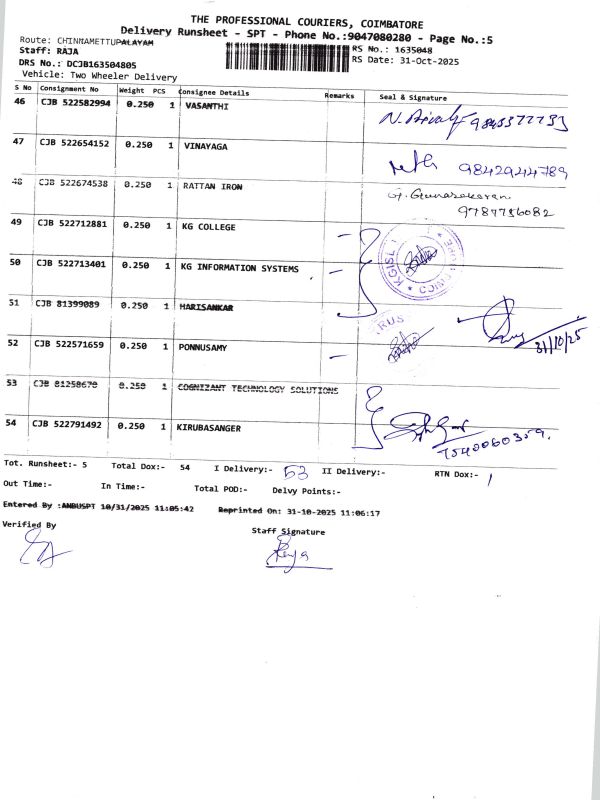 THE PROFESSIONAL COURIERS, COIMBATORE
Delivery Runsheet - SPT - Phone No.:9047080280 - Page No.:5
Route: CHINNAMETTUPALAYAM
RS No.: 1635048
Staff: RAJA
RS Date: 31-Oct-2025
DRS No.: DCJB163504805
Vehicle: Two Wheeler Delivery
S No Consignment No Weight PCS Consignee Details Remarks Seal & Signature
46 CJB 522582994 0.250 1 VASANTHI
47 CJB 522654152 0.250 1 VINAYAGA 9842944789
48 CJB 522674538 0.250 1 RATTAN IRON G. Gunasekaran
9787756082
49 CJB 522712881 0.250 1 KG COLLEGE KGISL
50 CJB 522713401 0.250 1 KG INFORMATION SYSTEMS
51 CJB 81399089 0.250 1 HARISANKAR
31/10/25
52 CJB 522571659 0.250 1 PONNUSAMY
53 CJB 81258670 0.250 1 COGNIZANT TECHNOLOGY SOLUTIONS
54 CJB 522791492 0.250 1 KIRUBASANGER
Tot. Runsheet:- 5 Total Dox:- 54 I Delivery:- 53 II Delivery:- RTN Dox:- 1
Out Time:- In Time:- Total POD:- Delvy Points:-
Entered By :ANBUSPT 10/31/2025 11:05:42 Reprinted On: 31-10-2025 11:06:17
Verified By
Staff Signature
Raja